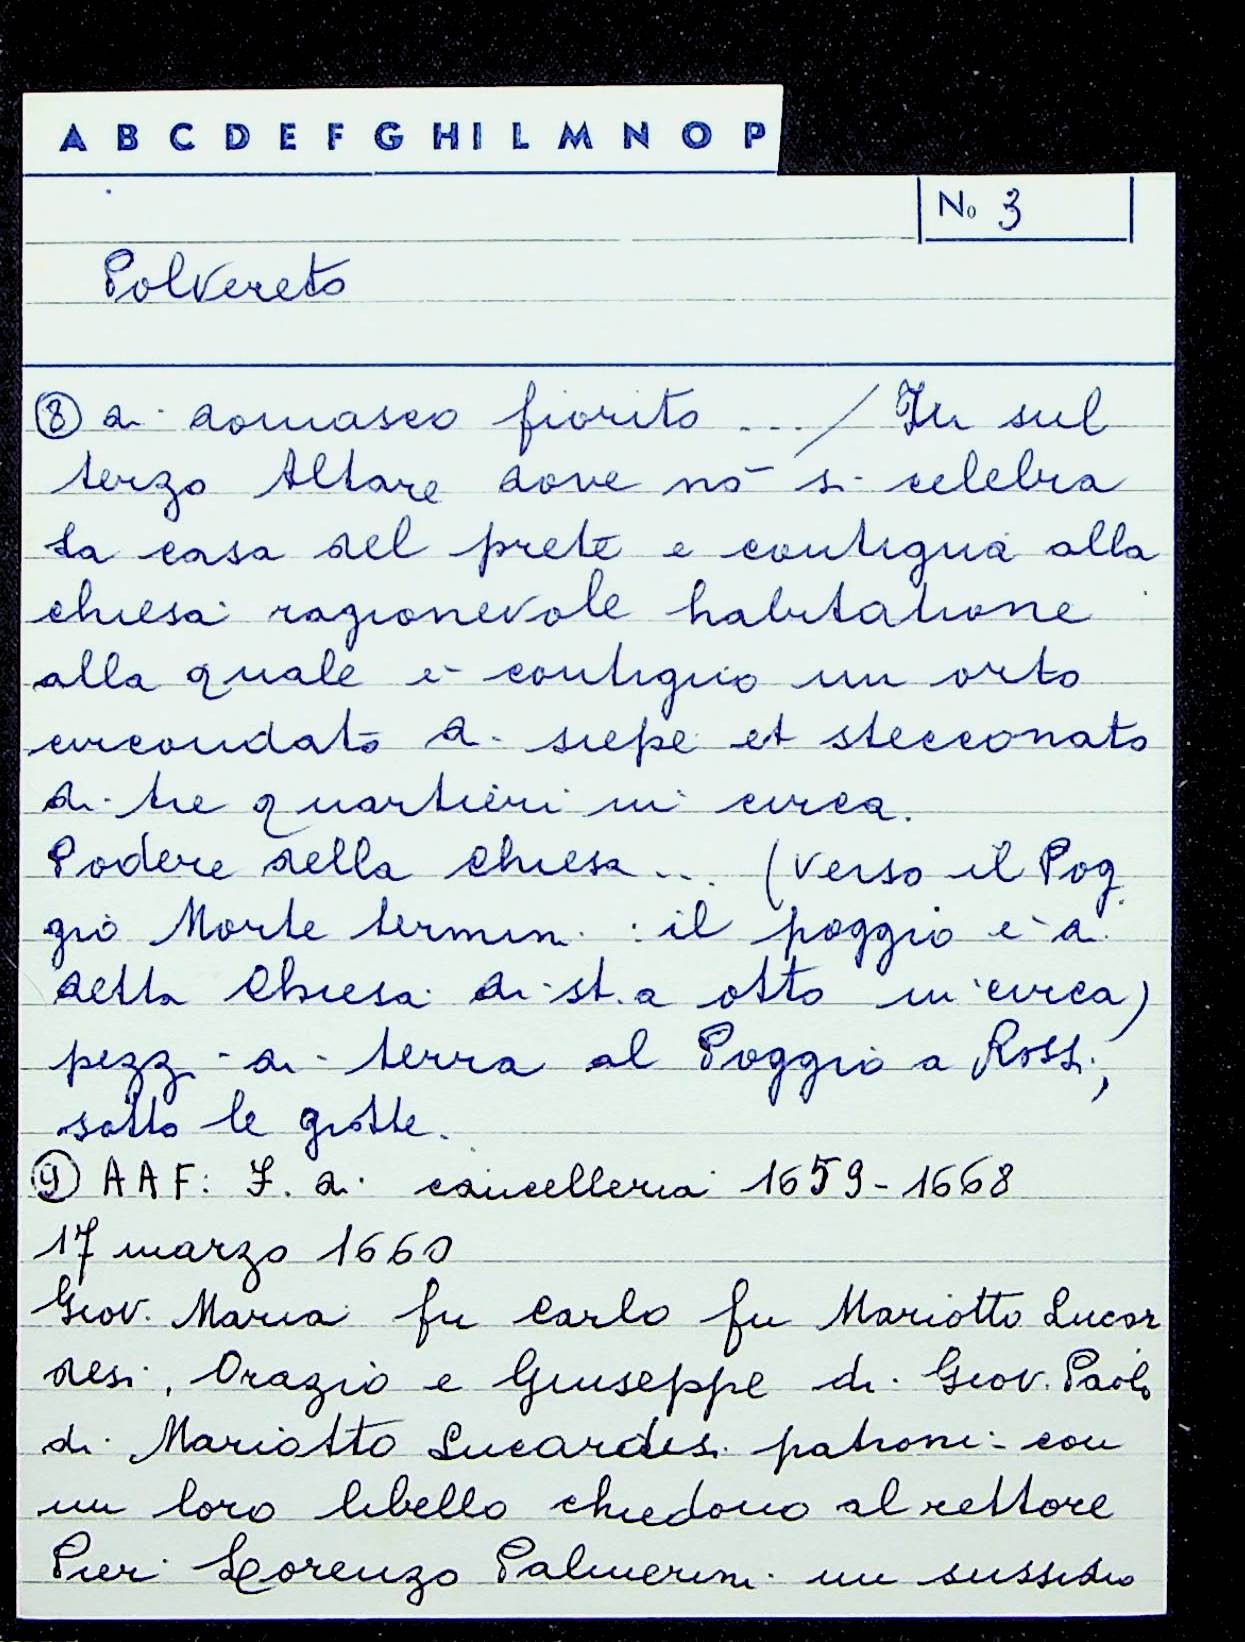 A B C D E F G H I L M N O P
No 3
Polvereto
⑧ di domasco fiorito ... / In sul
terzo Altare dove nō si celebra
La casa del prete è contigua alla
chiesa ragionevole habitatione
alla quale è contiguo un orto
circondato di siepe et stecconato
di tre quartieri in circa.
Podere della Chiesa ... (verso il Pog
gio Morte termin. : il poggio è di
detta Chiesa di st.a otto in circa)
pezz. di terra al Poggio a Rossi,
sotto le grotte.
⑨ AAF: F. di cancelleria 1659-1668
17 marzo 1660
Giov. Maria fu Carlo fu Mariotto Lucar
desi, Orazio e Giuseppe di Giov. Paolo
di Mariotto Lucardesi patroni con
un loro libello chiedono al rettore
Pier Lorenzo Palmerini un sussidio